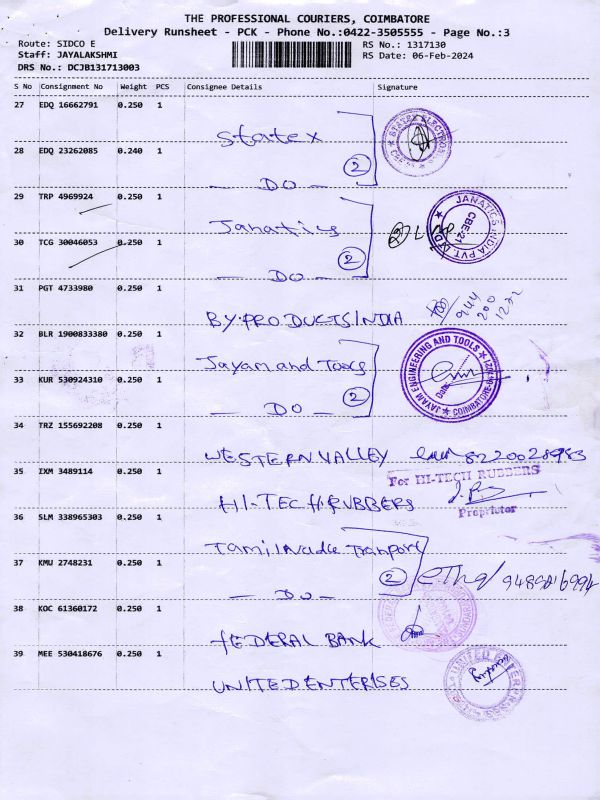 THE PROFESSIONAL COURIERS, COIMBATORE
Delivery Runsheet - PCK - Phone No.:0422-3505555 - Page No.:3
Route: SIDCO E
RS No.: 1317130
Staff: JAYALAKSHMI
RS Date: 06-Feb-2024
DRS No.: DCJB131713003
S No Consignment No Weight PCS Consignee Details Signature
27 EDQ 16662791 0.250 1 Statex
28 EDQ 23262085 0.240 1 - DO - 2
29 TRP 4969924 0.250 1 Janatics
JANATICS INDIA PVT. LTD CBE-21
30 TCG 30046053 0.250 1 - DO - 2
31 PGT 4733980 0.250 1 BY.PRODUCTS INDIA
944
200
1232
32 BLR 1900833380 0.250 1 Jayam and Tools
JAYAM ENGINEERING AND TOOLS COIMBATORE
Date:
33 KUR 530924310 0.250 1 - DO - 2
34 TRZ 155692208 0.250 1 WESTERN VALLEY 8220028983
35 IXM 3489114 0.250 1 HI-TECH RUBBERS
For HI-TECH RUBBERS
Proprietor
36 SLM 338965303 0.250 1 Tamilnadu Tranport
37 KMU 2748231 0.250 1 - DO - 2
38 KOC 61360172 0.250 1 FEDERAL BANK
39 MEE 530418676 0.250 1 UNITED ENTERISES